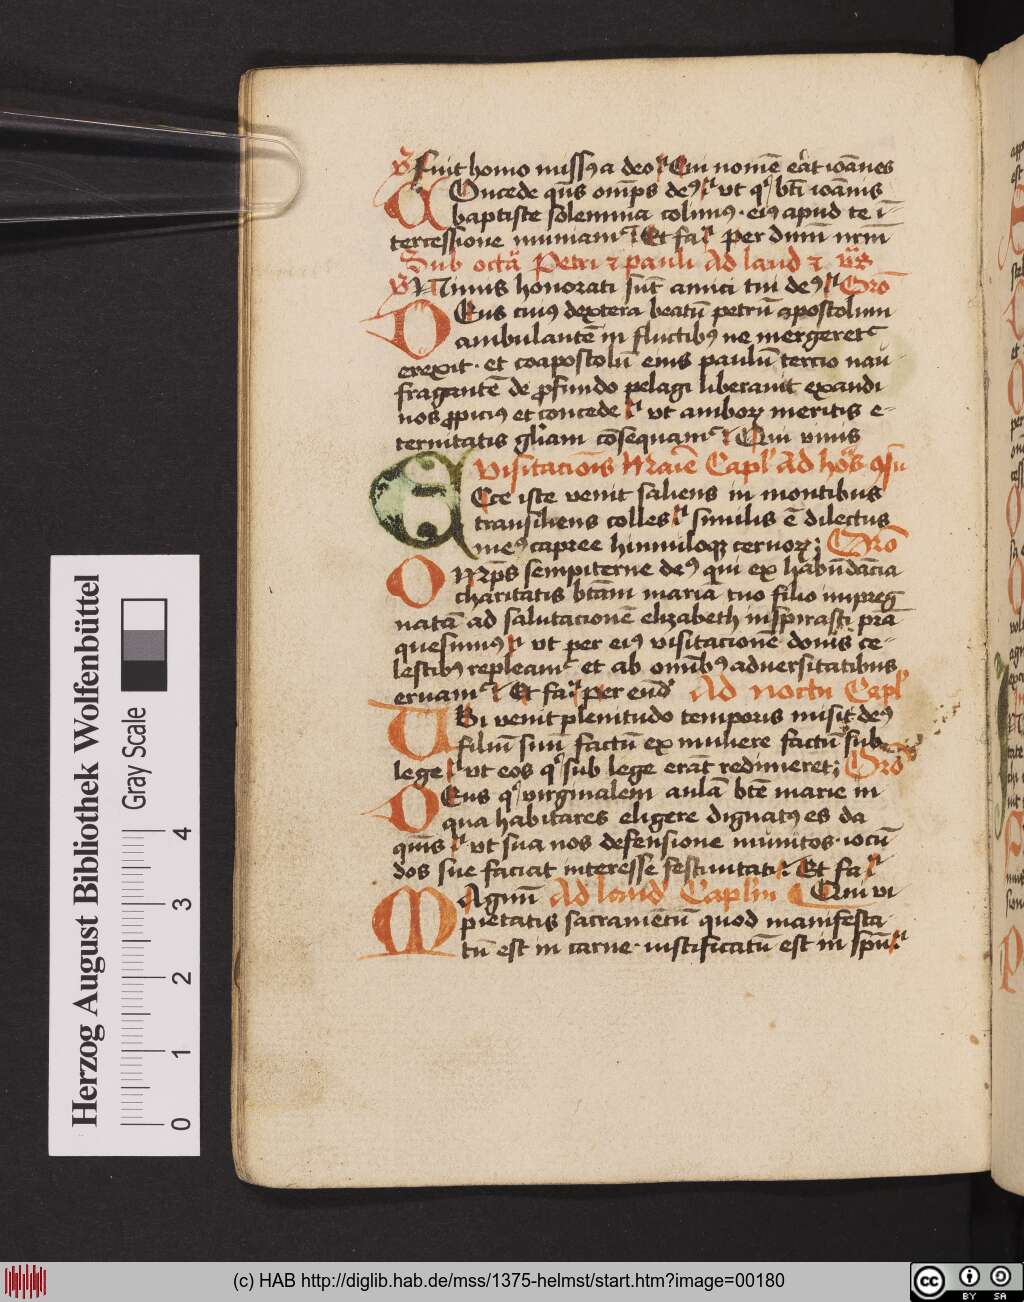 V Fuit homo missꝰ a deo Cui nomē erāt ioānes
COncede qūs omīps deꝰ vt qͥ btī ioānis
baptiste solemnia colimꝰ · eiꝰ apud te ī-
tercessione muniamͬ Et fa per dnm̄ nrm̄
Sub octā Petri et pauli Ad laud et vꝰs
V Nimis honorati sūt amici tui deꝰ Orō
DEus cuius dextera beatū petrū apostolum
ambulantē in fluctibꝰ ne mergeretͬ
erexit · et coapostolū eius paulū tercio nau-
fragantē de ꝓfundo pelagi liberauit exaudi
nos ꝓpiciꝰ et concede vt amboꝝ meritis e-
ternitatis gliam cōsequamͬ Qui viuis
Visitacionis Marie Capl Ad
ECce iste venit saliens in montibus
transiliens colles similis ē dilectus
meꝰ capree hinnuloqꝫ ceruoꝝ; Orō
OMps sempiterne deꝰ qui ex habūdācia
charitatis btām maria tuo filio impreg
natā ad salutacionē elizabeth inspirasti prā
quesumus vt per eiꝰ visitacionē donis ce-
lestibꝰ repleamͬ et ab omībꝰ aduersitatibus
eruamͬ Et fa per eund Ad noctu Capl
UBi venit plenitudo temporis misit deꝰ
filiū suū factū ex muliere factū sub
lege vt eos qͥ sub lege erāt redimeret; Orō
DEus qͥ virginalem aulā btē marie in
qua habitares eligere dignatꝰ es da
qūis vt sua nos defensione munitos · iocū
dos sue faciat interesse festiuitati · Et fa
MAgnū Ad laud Caplm Qui vi
pietatis sacramētū quod manifesta
tū est in carne · iustificatū est in spū
Herzog August Bibliothek Wolfenbüttel
Gray Scale
0 1 2 3 4
(c) HAB http://diglib.hab.de/mss/1375-helmst/start.htm?image=00180
cc BY SA